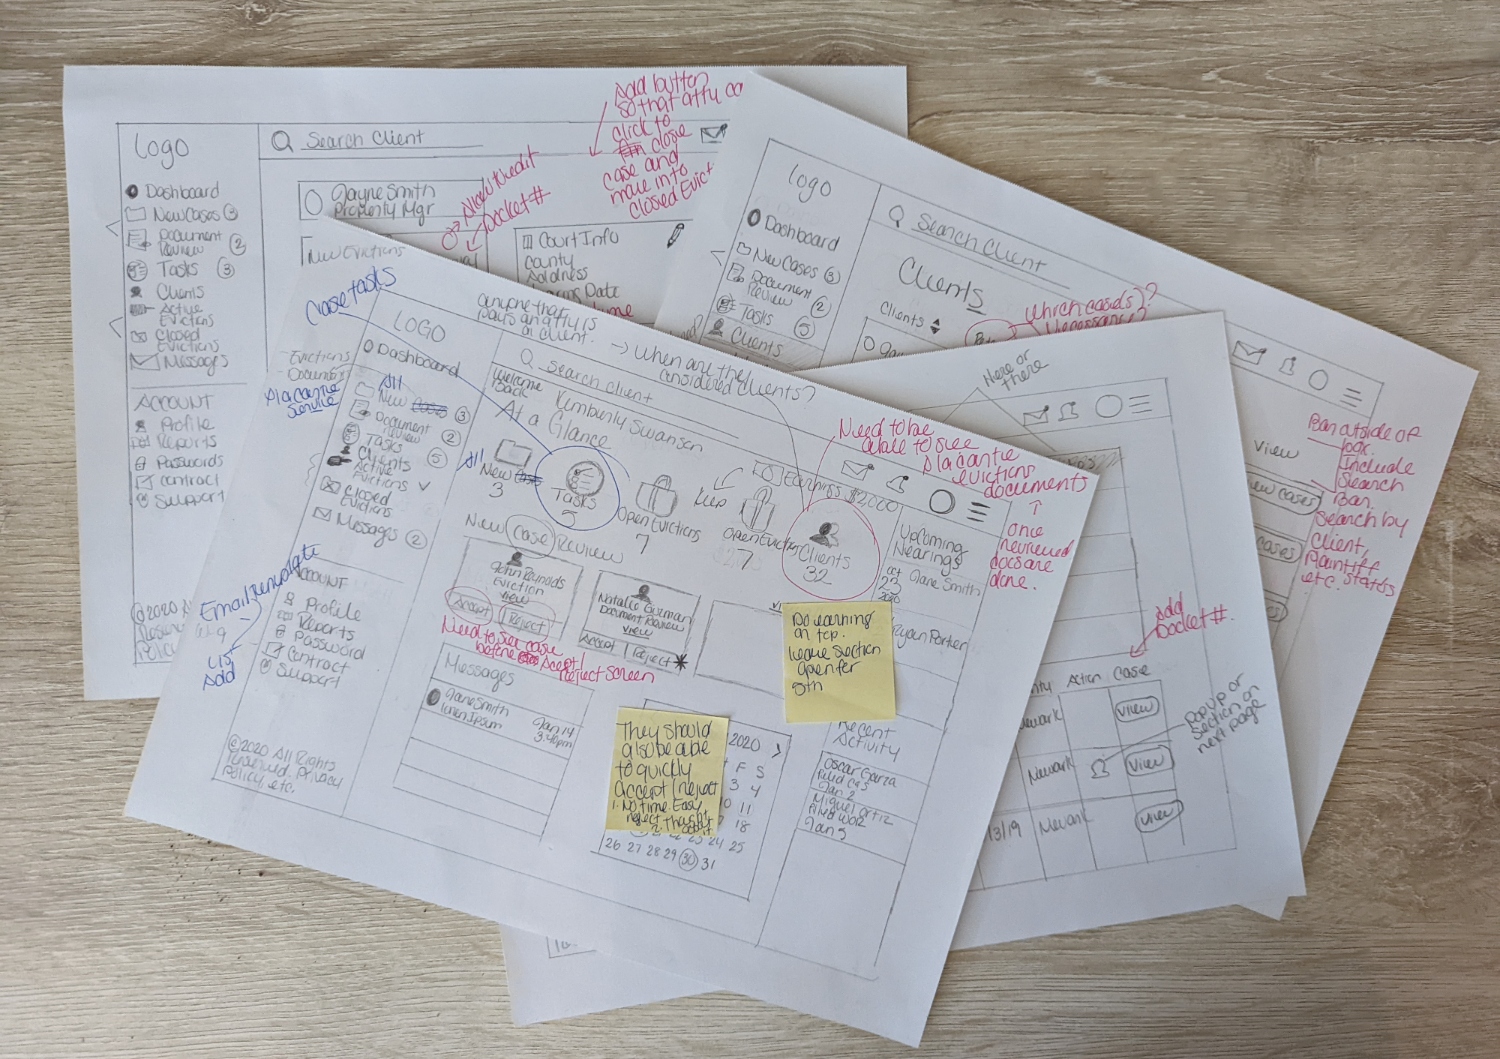 Logo
Search Client
Dashboard
New Cases 3
Document
Review 2
Tasks 3
Clients
Active
Evictions
Closed
Evictions
Messages
ACCOUNT
Profile
Reports
Passwords
Contract
Support
©2020
Jayne Smith
Property Mgr
New Evictions
Docket #
Add button
so that atty ca
click to
close
case and
move into
closed Evict
Court Info
County
Address
Date
logo
Dashboard
New Cases 3
Document
Review 2
Tasks 5
Clients
Search Client
Clients
Clients
which case(s)?
Necessary?
View
Bar outside of
logic.
Include
Search
Bar.
Search by
Client,
Plaintiff
status
etc.
Here or
there
Add
Docket #.
Action Case
Newark View
Newark View
3/19 Newark View
Pop Up or
Section on
next page
Close tasks
anyone that
pays an atty is
a client.
→ When are they
considered clients?
LOGO
Dashboard
All
New Cases 3
Document
Review 2
Tasks 5
Clients
Active
Evictions ✓
Closed
Evictions
Messages 2
Evictions
Service
Email
template
Add
ACCOUNT
Profile
Reports
Password
Contract
Support
©2020 All Rights
Reserved. Privacy
Policy, etc.
Search Client
Welcome
Back Kimberly Swansen
At a Glance
All
New
3
Tasks
Open Evictions
7
Keep
Open Evictions
7
Earnings $2,000
Clients
32
Need to be
able to see
evictions
documents
↑
once
reviewed
docs are
done.
New Case Review
John Reynolds
Eviction
View
Accept Reject
Natalie Guzman
Document Review
View
Accept Reject
Need to see case
before Accept/
Reject screen
Messages
Jane Smith Jan 14
Lorem Ipsum 3:40pm
Upcoming
Hearings
Oct
22
2020
Jane Smith
Ryan Parker
Do earning
on top.
Leave section
open for
sth
They should
also be able
to quickly
accept/reject
1. No time. Easy
2020 >
F S
3 4
11
18
24 25
26 27 28 29 30 31
Recent
Activity
Oscar Garza
Paid
Jan 2
Miguel Ortiz
Filed
Jan 5